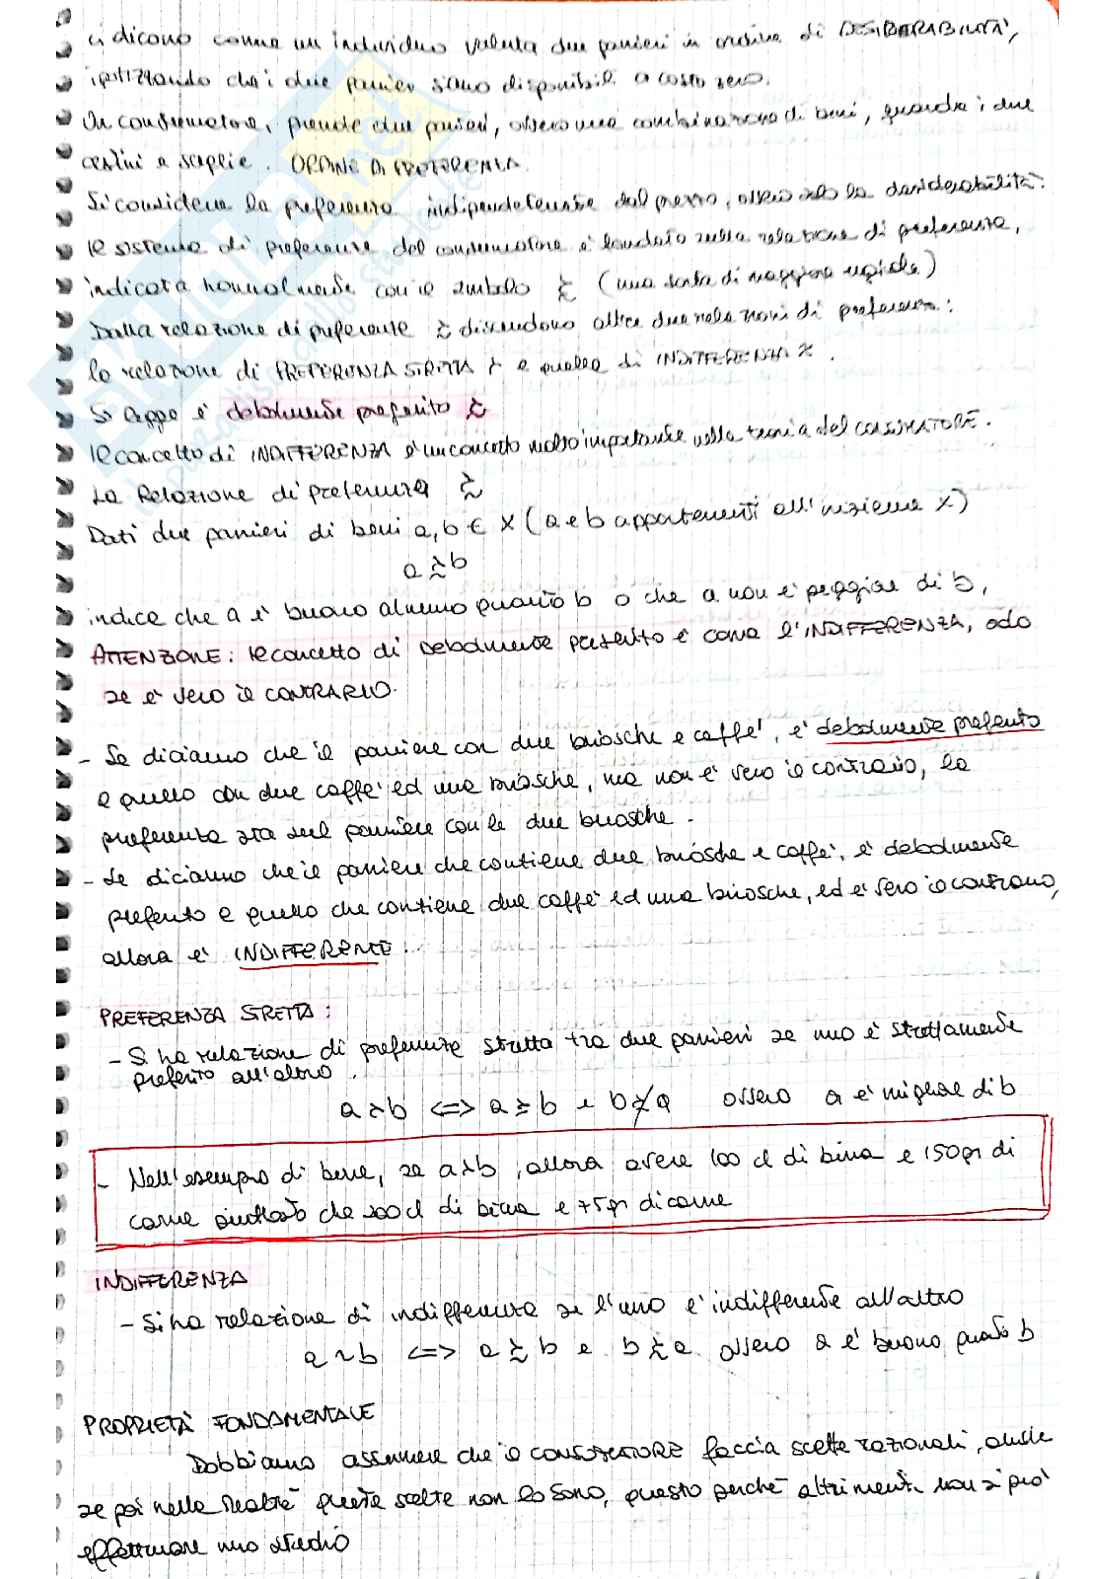 ci dicono come un individuo valuta due panieri in ordine di DESIDERABILITÀ,
ipotizzando che i due panieri siano disponibili a costo zero.
Un consumatore, prende due panieri, ossero una combinazione di beni, guarda i due
cestini e sceglie. ORDINE DI PREFERENZA.
Si considera la preferenza indipendetemente dal prezzo, ossero solo la desiderabilità.
Il sistema di preferenze del consumatore è fondato sulla relazione di preferenza,
indicata normalmente con il simbolo ≿ (una sorta di maggiore uguale)
Dalla relazione di preferenze ≿ discendono altre due relazioni di preferenza:
la relazione di PREFERENZA STRETTA ≻ e quella di INDIFFERENZA
Si legge è debolmente preferito ≿
Il concetto di INDIFFERENZA è un concetto molto importante nella teoria del CONSUMATORE.
La Relazione di preferenza ≿
Dati due panieri di beni a, b ∈ X (a e b appartenenti all'insieme X)
a ≿ b
indica che a è buono almeno quanto b o che a non è peggiore di b,
ATTENZIONE: il concetto di debolmente preferito è come l'INDIFFERENZA, solo
se è vero il CONTRARIO.
- Se diciamo che il paniere con due briosche e caffè, è debolmente preferito
a quello con due caffè ed una briosche, ma non è vero il contrario, la
preferenza sta sul paniere con le due brioche.
- Se diciamo che il paniere che contiene due brioshe e caffè, è debolmente
preferito a quello che contiene due caffè ed una brioshe, ed è vero il contrario,
allora è INDIFFERENTE.
PREFERENZA STRETTA:
- Si ha relazione di preferenze stretta tra due panieri se uno è strettamente
preferito all'altro.
a ≻ b <=> a ≿ b e b ⋡ a ossero a è migliore di b
- Nell'esempio di bene, se a≻b, allora avere 100 cl di birra e 150gr di
carne piuttosto che 200cl di birra e 75gr di carne
INDIFFERENZA
- Si ha relazione di indifferenza se l'uno è indifferente all'altro
a ~ b <=> a ≿ b e b ≿ a ossero a è buono quanto b
PROPRIETÀ FONDAMENTALE
Dobbiamo assumere che il CONSUMATORE faccia scelte razionali, anche
se poi nella realtà queste scelte non lo sono, questo perché altrimenti non si può
effettuare uno studio